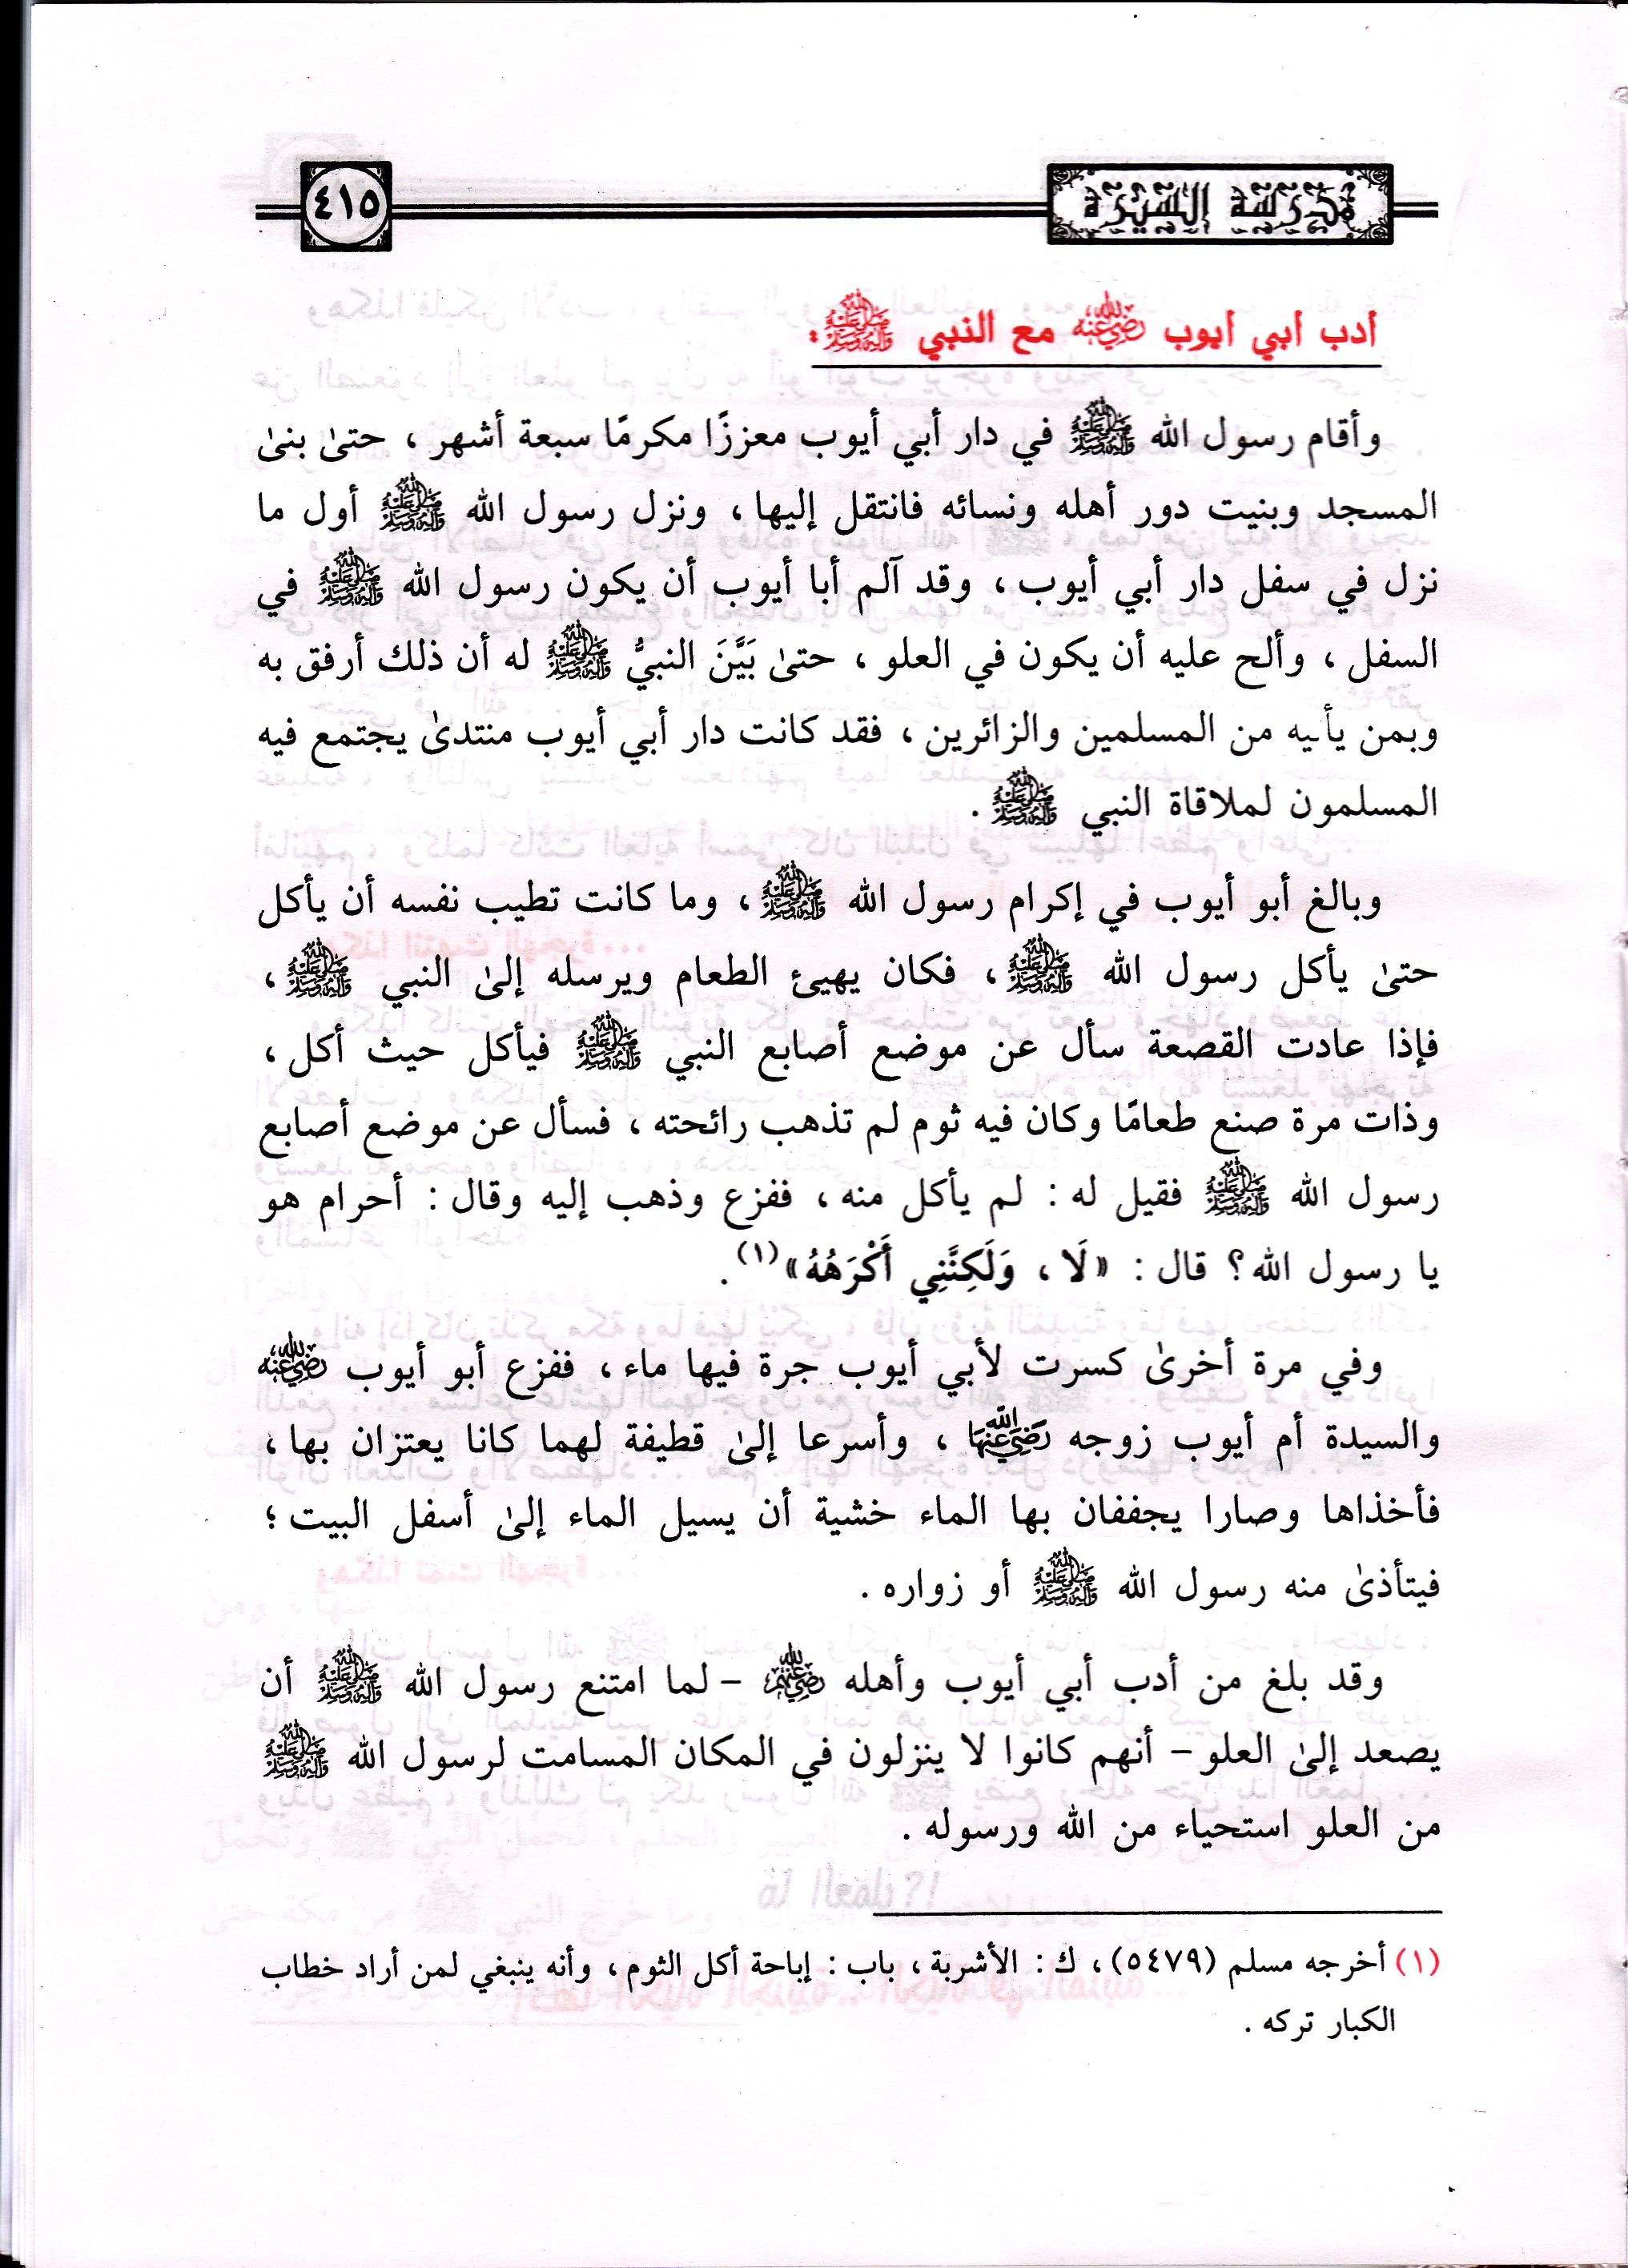 مدرسة السيرة
٤١٥
أدب أبي أيوب رضي الله عنه مع النبي ﷺ:
وأقام رسول الله ﷺ في دار أبي أيوب معززًا مكرمًا سبعة أشهر ، حتىٰ بنىٰ
المسجد وبنيت دور أهله ونسائه فانتقل إليها، ونزل رسول الله ﷺ أول ما
نزل في سفل دار أبي أيوب، وقد آلم أبا أيوب أن يكون رسول الله ﷺ في
السفل ، وألح عليه أن يكون في العلو ، حتىٰ بَيَّنَ النبيُّ ﷺ له أن ذلك أرفق به
وبمن يأتيه من المسلمين والزائرين ، فقد كانت دار أبي أيوب منتدىٰ يجتمع فيه
المسلمون لملاقاة النبي ﷺ .
وبالغ أبو أيوب في إكرام رسول الله ﷺ، وما كانت تطيب نفسه أن يأكل
حتىٰ يأكل رسول الله ﷺ، فكان يهيئ الطعام ويرسله إلىٰ النبي ﷺ،
فإذا عادت القصعة سأل عن موضع أصابع النبي ﷺ فيأكل حيث أكل،
وذات مرة صنع طعامًا وكان فيه ثوم لم تذهب رائحته ، فسأل عن موضع أصابع
رسول الله ﷺ فقيل له: لم يأكل منه، ففزع وذهب إليه وقال: أحرام هو
يا رسول الله؟ قال: «لَا ، وَلَكِنَّنِي أَكْرَهُهُ»(١).
وفي مرة أخرىٰ كسرت لأبي أيوب جرة فيها ماء، ففزع أبو أيوب رضي الله عنه
والسيدة أم أيوب زوجه رَضِيَ اللهُ عَنْهَا ، وأسرعا إلىٰ قطيفة لهما كانا يعتزان بها،
فأخذاها وصارا يجففان بها الماء خشية أن يسيل الماء إلىٰ أسفل البيت؛
فيتأذىٰ منه رسول الله ﷺ أو زواره .
وقد بلغ من أدب أبي أيوب وأهله رضي الله عنهم – لما امتنع رسول الله ﷺ أن
يصعد إلىٰ العلو – أنهم كانوا لا ينزلون في المكان المسامت لرسول الله ﷺ
من العلو استحياء من الله ورسوله .
(١) أخرجه مسلم (٥٤٧٩)، ك: الأشربة ، باب: إباحة أكل الثوم، وأنه ينبغي لمن أراد خطاب
الكبار تركه .